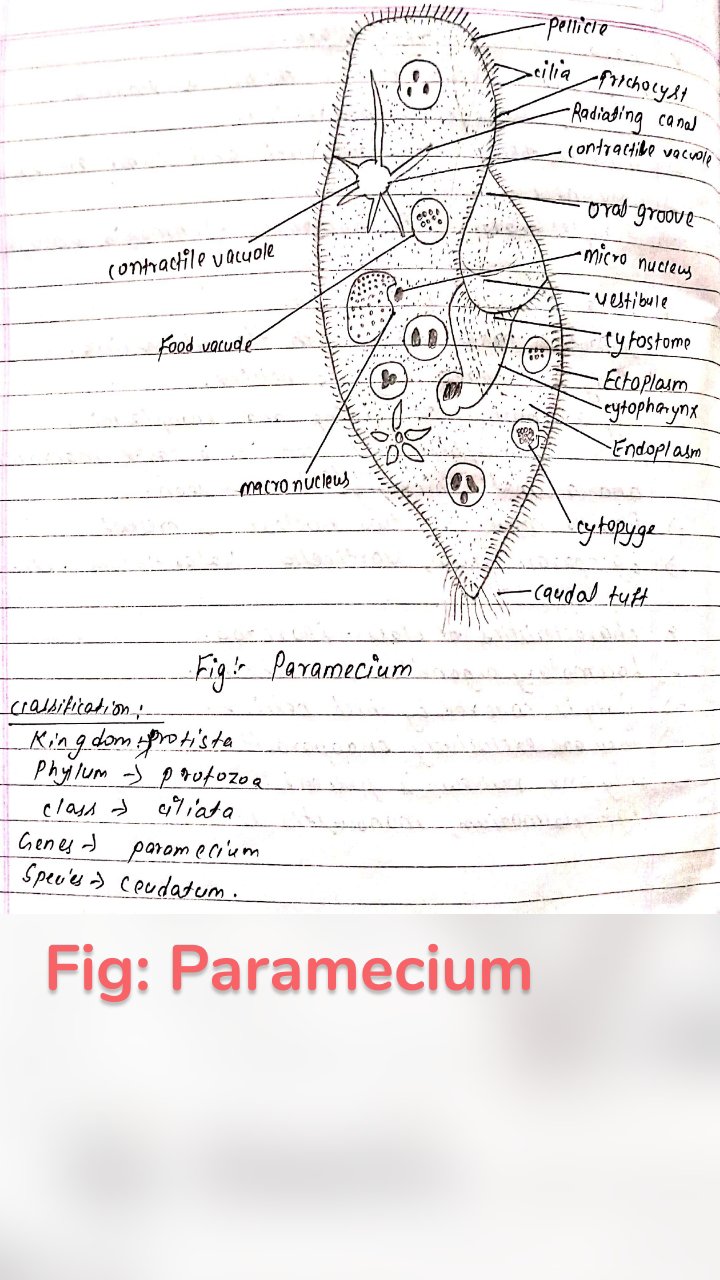 pellicle
cilia
Trichocyst
Radiating canal
contractile vacuole
oral groove
contractile vacuole
micro nucleus
vestibule
Food vacude
cytostome
Ectoplasm
cytopharynx
Endoplasm
macronucleus
cytopyge
caudal tuft
Fig:- Paramecium
classification:
Kingdom → protista
Phyllum → protozoa
class → ciliata
Genes → paramecium
Species → Ceudatum.
Fig: Paramecium